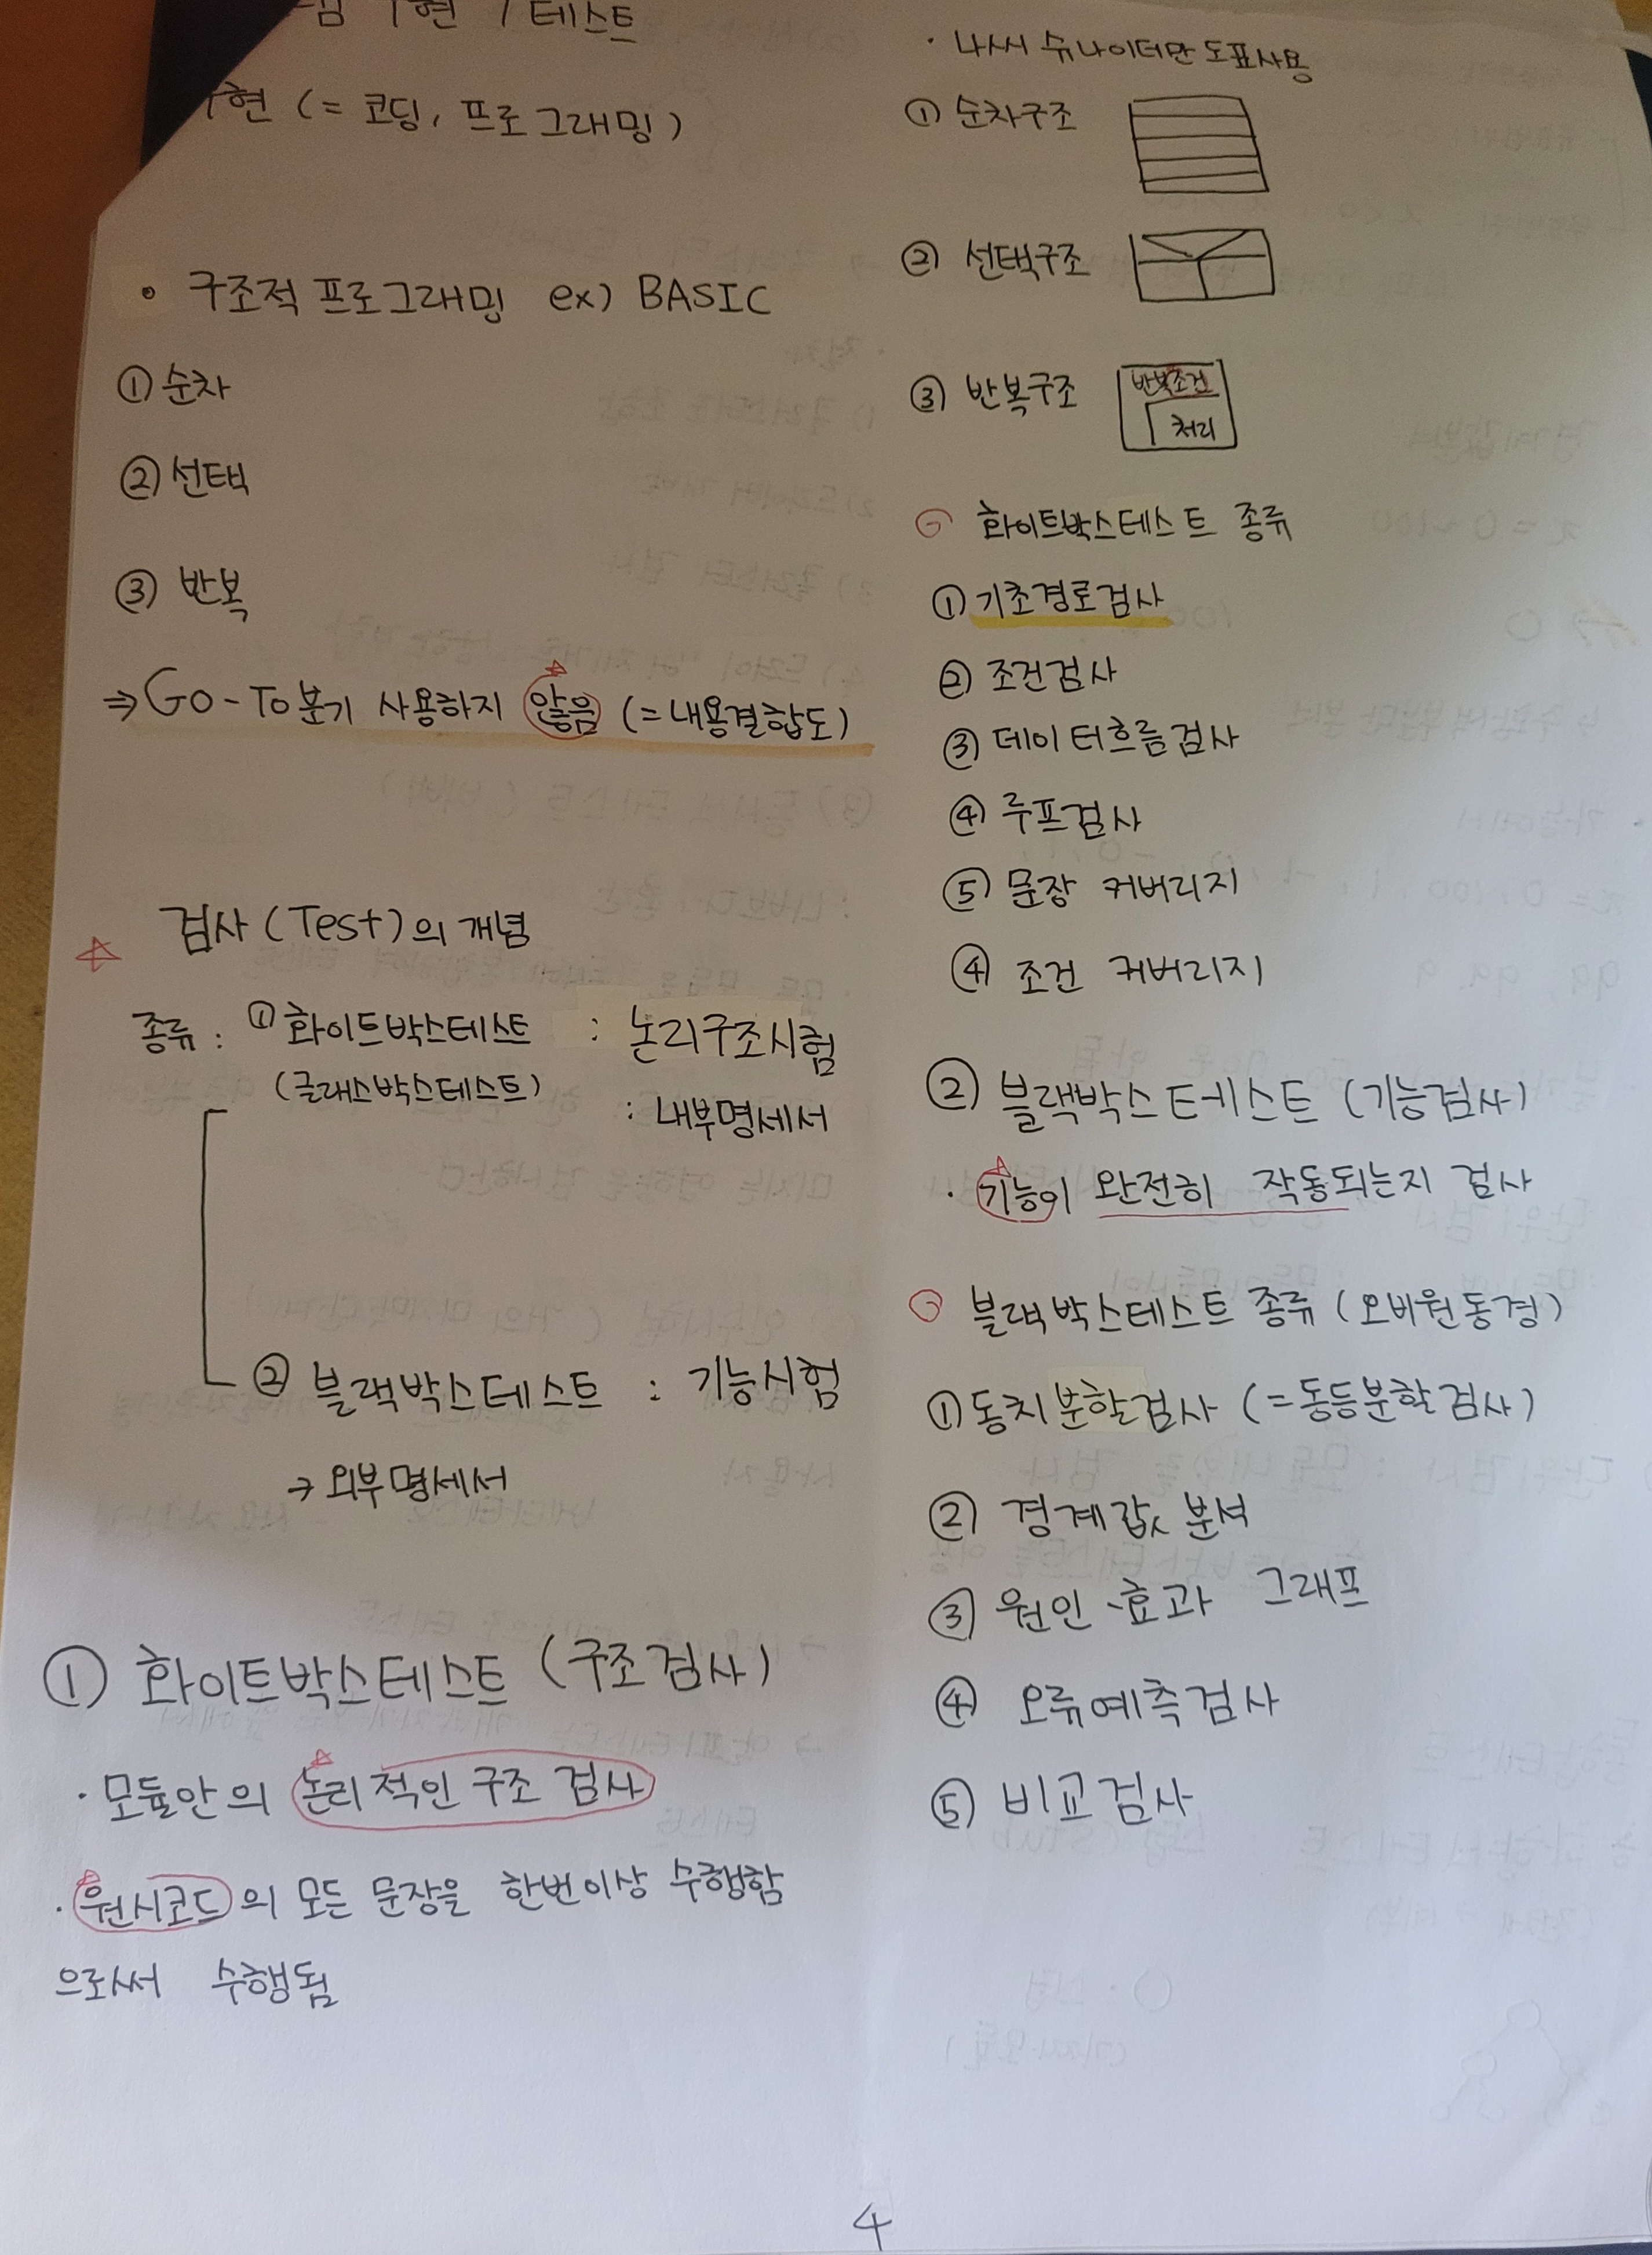 / 테스트
현 (= 코딩, 프로그래밍)
• 구조적 프로그래밍 ex) BASIC
① 순차
② 선택
③ 반복
⇒ Go-To분기 사용하지 않음 (=내용결합도)
☆ 검사(Test)의 개념
종류 : ① 화이트박스테스트 : 논리구조시험
(글래스박스테스트) : 내부명세서
② 블랙박스테스트 : 기능시험
→ 외부명세서
① 화이트박스테스트 (구조검사)
· 모듈안의 논리적인 구조 검사
· 원시코드의 모든 문장을 한번이상 수행함
으로써 수행됨
· 나씨 슈나이더만 도표사용
① 순차구조
② 선택구조
③ 반복구조
반복조건
처리
화이트박스테스트 종류
① 기초경로검사
② 조건검사
③ 데이터흐름검사
④ 루프검사
⑤ 문장 커버리지
④ 조건 커버리지
② 블랙박스테스트 (기능검사)
· 기능이 완전히 작동되는지 검사
블랙박스테스트 종류 (오비원동경)
① 동치분할검사 (=동등분할검사)
② 경계값 분석
③ 원인-효과 그래프
④ 오류예측검사
⑤ 비교검사
4